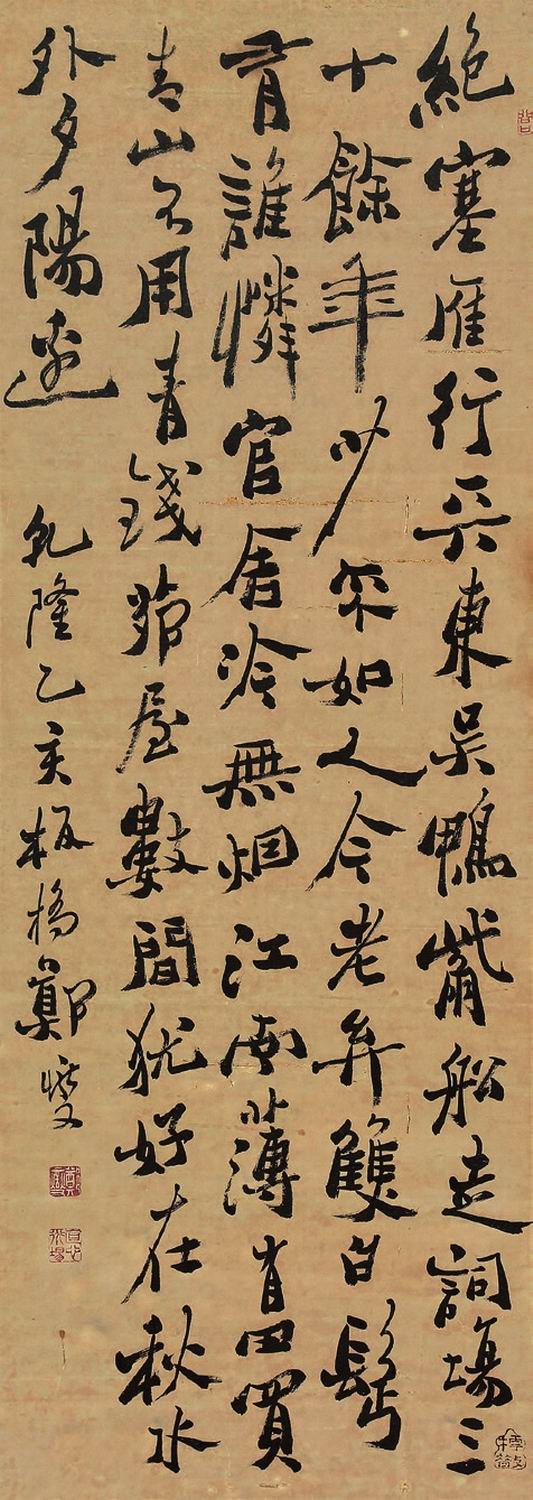 絕塞雁行天東吳鴨觜船走詞場三
十餘年少不如人今老矣雙白鬢
有誰憐官舍冷無烟江南薄有田買
青山不用青錢茆屋數間犹好在秋水
外夕陽邊
乾隆乙亥板橋鄭燮